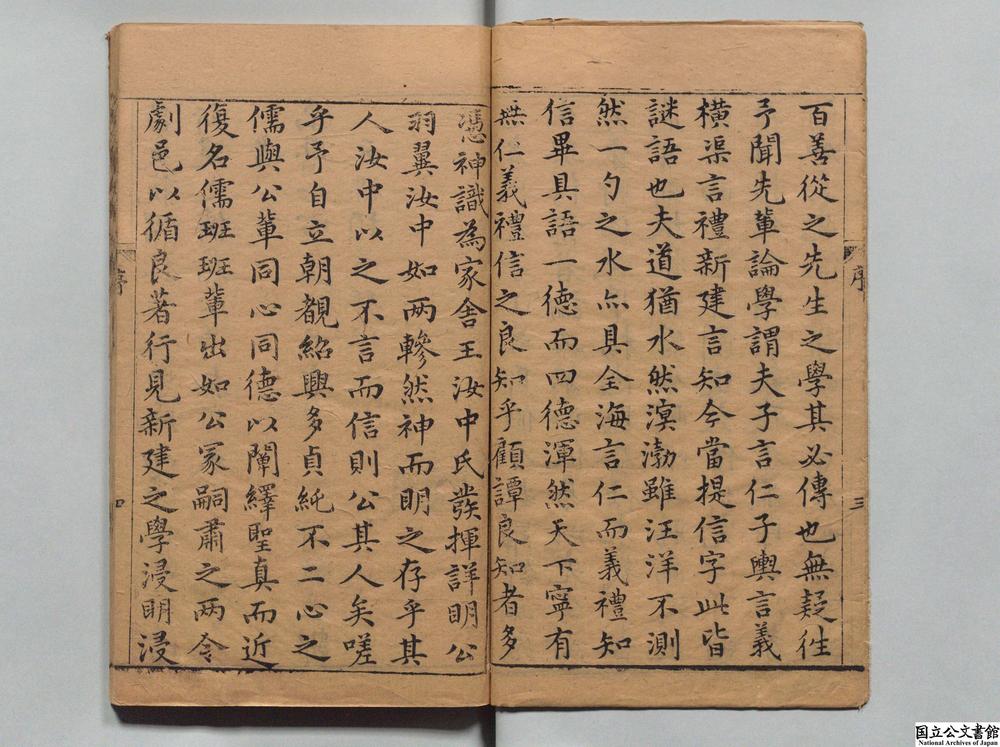 百善從之先生之學其必傳也無疑徃
予聞先軰論學謂夫子言仁子輿言義
橫渠言禮新建言知今當提信字此皆
謎語也夫道猶水然溟渤雖汪洋不測
然一勺之水亦具全海言仁而義禮知
信畢具語一德而四德渾然天下寧有
無仁義禮信之良知乎顧譚良知者多
序
三
憑神識為家舍王汝中氏發揮詳明公
羽翼汝中如兩轸然神而明之存乎其
人汝中以之不言而信則公其人矣嗟
乎予自立朝覩紹興多貞純不二心之
儒與公軰同心同德以闡繹聖真而近
復名儒班班軰出如公冢嗣肅之兩令
劇邑以循良著行見新建之學浸明浸
序
四
国立公文書館
National Archives of Japan